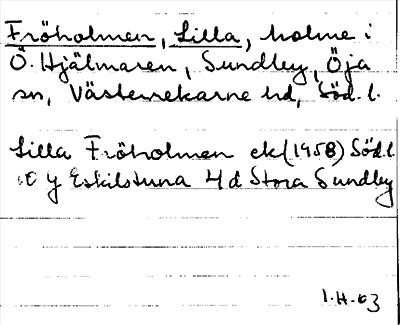 Fröholmen, Lilla, holme i
Ö. Hjälmaren, Sundley, Öja
sn, Västerrekarne hd, Söd. l.
Lilla Fröholmen ek (1958) Söd. l.
10 y Eskilstuna 4 d Stora Sundley
1.H.63